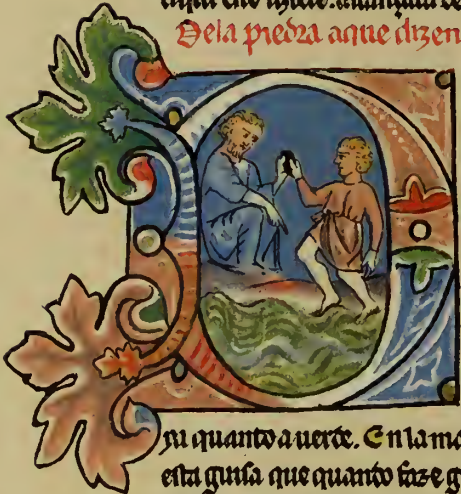 Dela piedra aque dizen
ni quanto a uerte. En la mo
esta guisa que quanto faze g